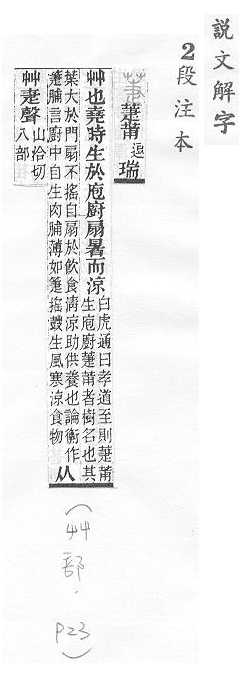 說文解字
2段注本
萐莆逗瑞
艸也堯時生於庖廚扇暑而涼
白虎通曰孝道至則萐莆
生庖廚萐莆者樹名也其
葉大於門扇不搖自扇於飲食淸涼助供養也論衡作
萐脯言廚中自生肉脯薄如箑搖鼓生風寒涼食物
从
艸疌聲
山洽切
八部
(艸部.P23)